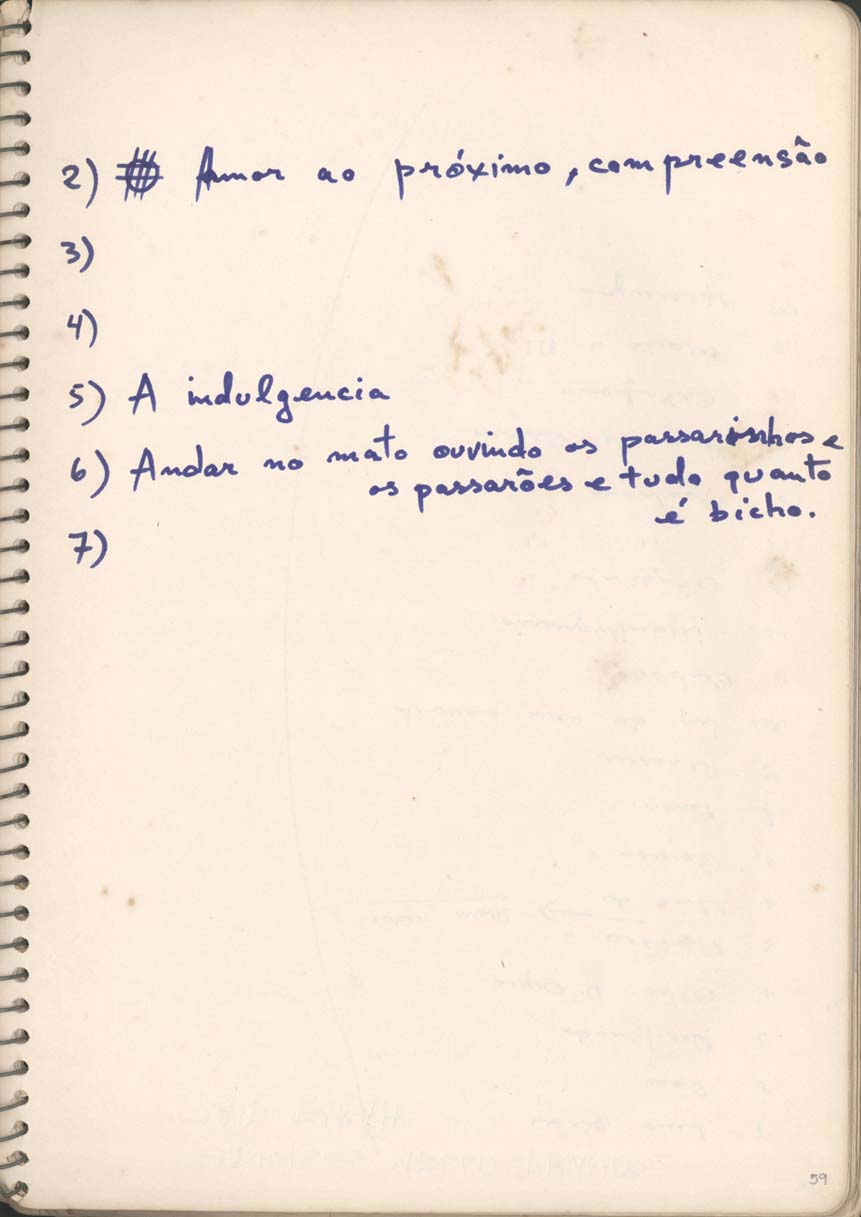 2) Amor ao próximo, compreensão
3)
4)
5) A indulgencia
6) Andar no mato ouvindo os passarinhos e
os passarões e tudo quanto
é bicho.
7)
59